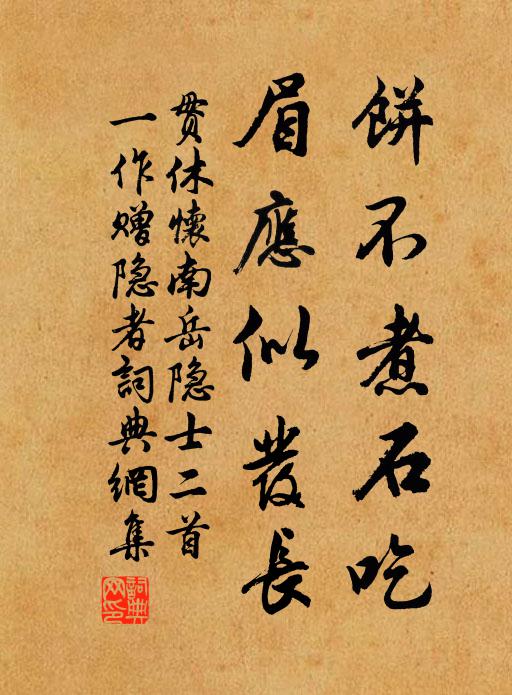 餅不煮石吃
眉應似發長
貫休懷南岳隐士二首
一作贈隐者詞典網集
詞典
网印